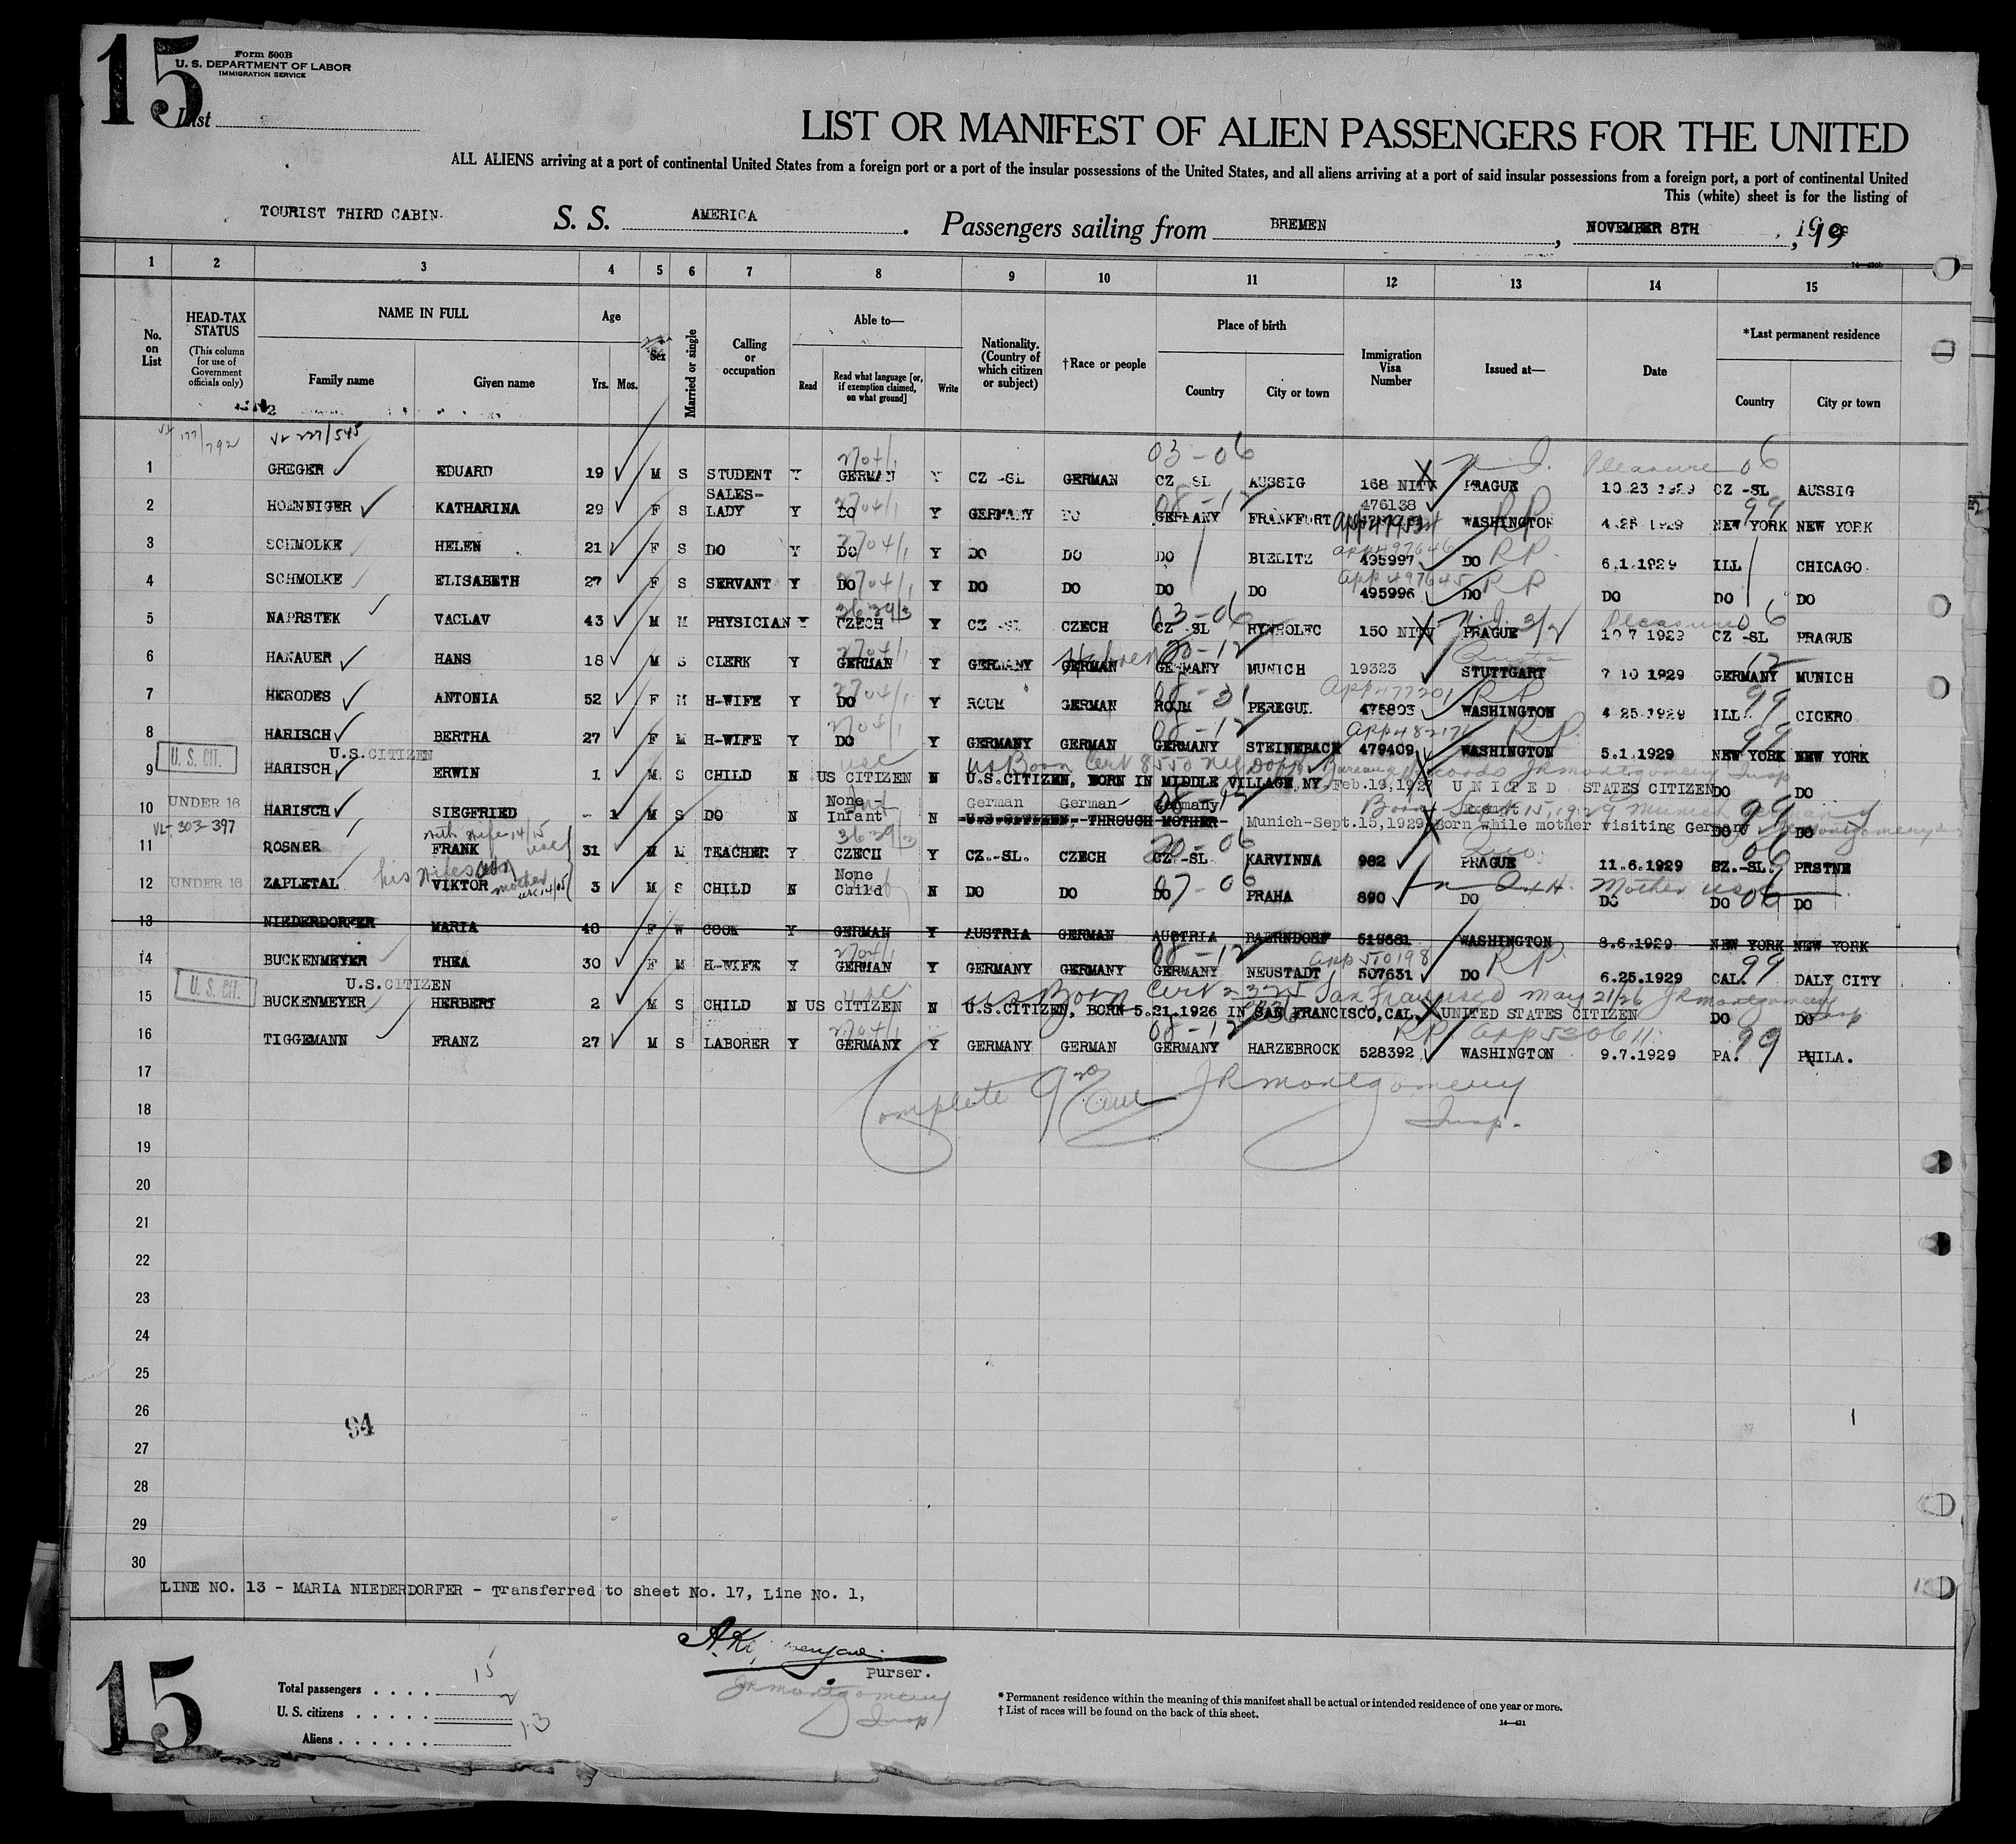 15
Form 500B
U. S. DEPARTMENT OF LABOR
IMMIGRATION SERVICE
List
LIST OR MANIFEST OF ALIEN PASSENGERS FOR THE UNITED
ALL ALIENS arriving at a port of continental United States from a foreign port or a port of the insular possessions of the United States, and all aliens arriving at a port of said insular possessions from a foreign port, a port of continental United
This (white) sheet is for the listing of
TOURIST THIRD CABIN S. S. AMERICA . Passengers sailing from BREMEN , NOVEMBER 8TH , 19
1 2 3 4 5 6 7 8 9 10 11 12 13 14 15
No. on List HEAD-TAX STATUS (This column for use of Government officials only) NAME IN FULL Family name Given name Age Yrs. Mos. Sex Married or single Calling or occupation Able to— Read Read what language [or, if exemption claimed, on what ground] Write Nationality. (Country of which citizen or subject) †Race or people Place of birth Country City or town Immigration Visa Number Issued at— Date *Last permanent residence Country City or town
177/792 227/545 2704/1 03-06 Pleasure 06
1 GREGER EDUARD 19 M S STUDENT Y GERMAN Y CZ-SL GERMAN CZ SL AUSSIG 168 NITV PRAGUE 10.23 1929 CZ-SL AUSSIG
476138
2 HOENNIGER KATHARINA 29 F S SALES-LADY Y DO Y GERMANY DO GERMANY FRANKFURT WASHINGTON RP 4.25 1929 NEW YORK NEW YORK
app 497646
3 SCHMOLKE HELEN 21 F S DO Y DO Y DO DO DO BIELITZ 495997 DO RP 6.1.1929 ILL CHICAGO
app 497645
4 SCHMOLKE ELISABETH 27 F S SERVANT Y DO Y DO DO DO DO 495996 DO RP DO DO DO
3639/3 03-06 Pleasure 06
5 NAPRSTEK VACLAV 43 M M PHYSICIAN Y CZECH Y CZ-SL CZECH CZ-SL 150 NITV PRAGUE 10 7 1929 CZ-SL PRAGUE
2704/1 Hebrew Quota 12
6 HANAUER HANS 18 M S CLERK Y GERMAN Y GERMANY GERMAN GERMANY MUNICH 19323 STUTTGART 7 10 1929 GERMANY MUNICH
2704/1 08-31 app 477201 RP 99
7 HERODES ANTONIA 52 F M H-WIFE Y DO Y ROUM GERMAN ROUM PEREGUL 475803 WASHINGTON 4 25.1929 ILL. CICERO
2704/1 08-12 app 482176 RP 99
8 HARISCH BERTHA 27 F M H-WIFE Y DO Y GERMANY GERMAN GERMANY STEINEBACH 479409 WASHINGTON 5.1.1929 NEW YORK NEW YORK
U. S. CIT. U.S.CITIZEN usc US Born Cert 8550 Bureau of Records JRMontgomery Insp
9 HARISCH ERWIN 1 M S CHILD N US CITIZEN N U.S.CITIZEN, BORN IN MIDDLE VILLAGE NY-Feb.19,1927 UNITED STATES CITIZEN DO DO
UNDER 16 None - German German Germany Born Sept 15, 1929 Munich Germany
10 HARISCH SIEGFRIED - 1 M S DO N Infant N U.S.CITIZEN, THROUGH MOTHER Munich-Sept.15,1929 Born while mother visiting Germany DO DO
303-397 with wife 14/15 usc 3639/3 06
11 ROSNER FRANK 31 M M TEACHER Y CZECH Y CZ.-SL. CZECH CZ-SL KARVINNA 982 PRAGUE 11.6.1929 CZ.-SL. PRSTNE
UNDER 16 his wifes son mother usc 14/15 None 07-06 Mother usc 06
12 ZAPLETAL VIKTOR 3 M S CHILD N Child N DO DO DO PRAHA 890 DO DO DO DO
13 NIEDERDORFER MARIA 48 F W COOK Y GERMAN Y AUSTRIA GERMAN AUSTRIA BAERNDORF 519681 WASHINGTON 8.6.1929 NEW YORK NEW YORK
2704/1 08-12 app 510198 RP 99
14 BUCKENMEYER THEA 30 F M H-WIFE Y GERMAN Y GERMANY GERMANY GERMANY NEUSTADT 507631 DO 6.25.1929 CAL. DALY CITY
U. S. CIT. U.S.CITIZEN usc US Born Cert 2325 San Francisco May 21/26 JRMontgomery Insp
15 BUCKENMEYER HERBERT 2 M S CHILD N US CITIZEN N U.S.CITIZEN, BORN 5.21.1926 IN SAN FRANCISCO,CAL. UNITED STATES CITIZEN DO DO
2704/1 08-12 RP app 530611 99
16 TIGGEMANN FRANZ 27 M S LABORER Y GERMANY Y GERMANY GERMAN GERMANY HARZEBROCK 528392 WASHINGTON 9.7.1929 PA. PHILA.
17
Complete JRMontgomery
18
Insp.
19
20
21
22
23
24
25
26
94
27
28
29
30
LINE NO. 13 - MARIA NIEDERDORFER - Transferred to sheet No. 17, Line No. 1,
Purser.
JRMontgomery
Insp
15
Total passengers 15
U. S. citizens 2
Aliens 13
* Permanent residence within the meaning of this manifest shall be actual or intended residence of one year or more.
† List of races will be found on the back of this sheet.
14—431